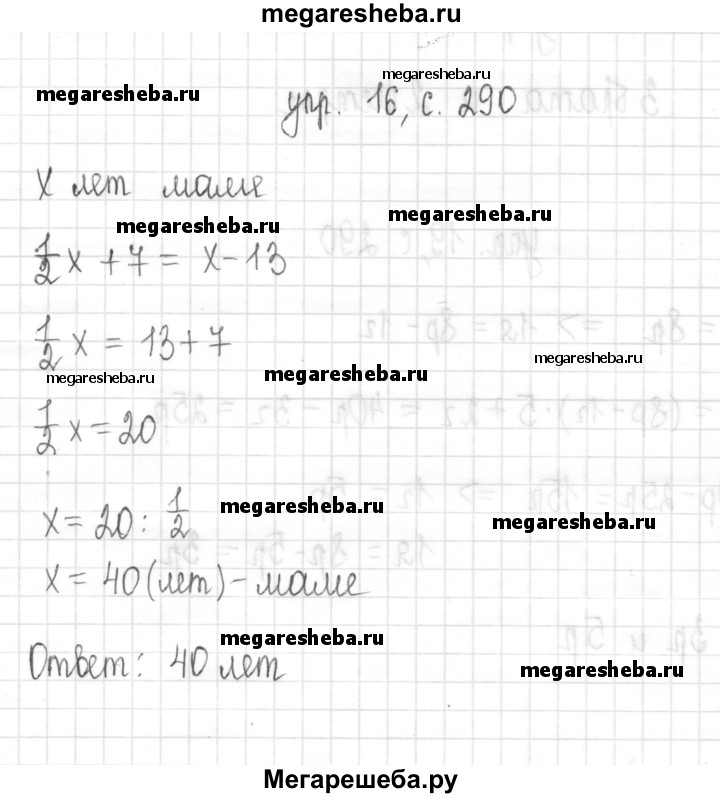 megaresheba.ru
megaresheba.ru
megaresheba.ru
упр. 16, с. 290
x лет маме
megaresheba.ru
megaresheba.ru
1/2 x + 7 = x - 13
1/2 x = 13 + 7
megaresheba.ru
megaresheba.ru
megaresheba.ru
1/2 x = 20
x = 20 : 1/2
megaresheba.ru
megaresheba.ru
x = 40 (лет) - маме
megaresheba.ru
Ответ: 40 лет
megaresheba.ru
Мегарешеба.ру